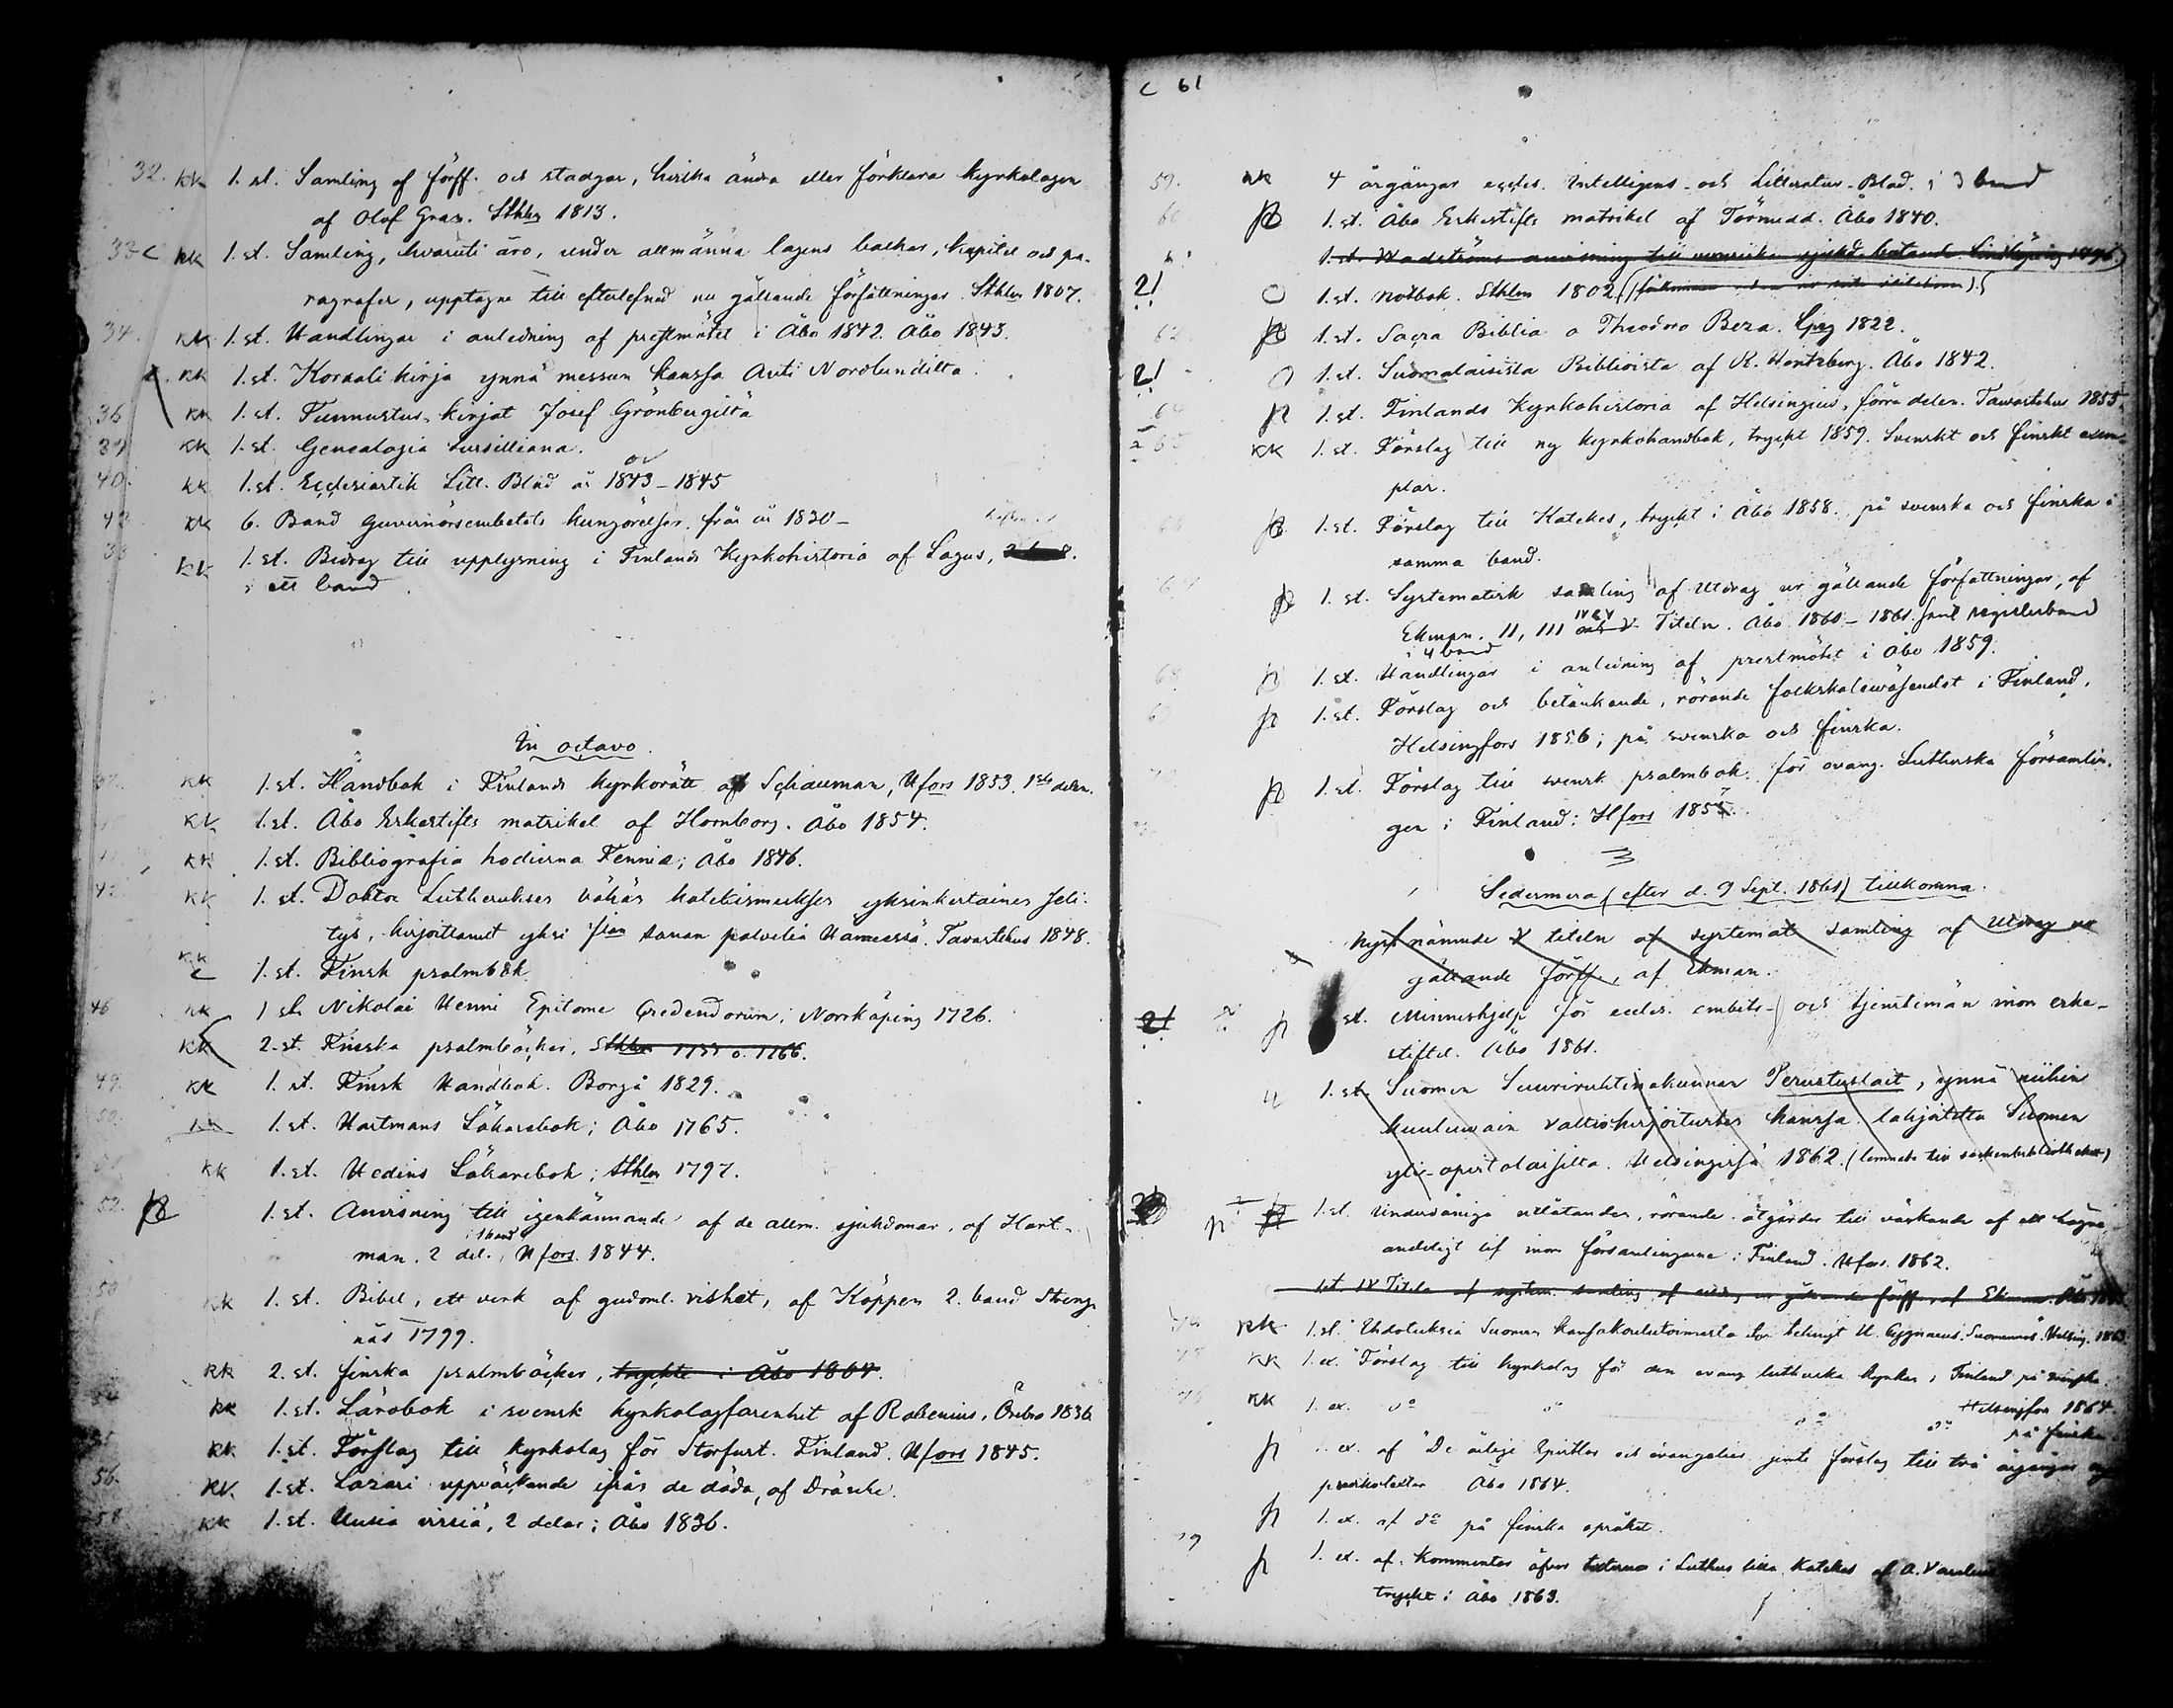 32. KK 1. st. Samling af förff. och stadgar, hvilka ändra eller förklara kyrkolagen
af Olof Graa. Sthlm 1813.
33 C KK 1. st. Samling, hvaruti äro, under allmänna lagens balkar, kapitel och pa-
ragrafer, upptagne till efterlefnad nu gällande författningar. Sthlm 1807.
34. KK 1. st. Handlingar i anledning af prestmötet i Åbo 1842. Åbo 1843.
KK 1. st. Koraali kirja ynnä messun kanssa Anti Nordlundilta.
36 KK 1. st. Tunnustus-kirjat Josef Grönbergiltä
39 KK 1. st. Genealogia Sursilliana.
40. KK 1. st. Ecclesiastik Litt. Blad år 1843 - 1845
42 KK 6. Band Guvernörsembetets kungörelser från år 1830 -
KK 1. st. Bidrag till upplysning i Finlands Kyrkohistoria af Lagus,
i ett band.
In octavo.
KK 1. st. Handbok i Finlands kyrkorätt af Schauman, Hfors 1853. 1sta delen.
KK 1. st. Åbo Erkestifts matrikel af Hornborg. Åbo 1854.
KK 1. st. Bibliografia hodierna Fennia; Åbo 1846.
KK 1. st. Doktor Lutheruksen vähän katekismuksen yksinkertainen seli-
tys, kirjoittanut yksi sanan palvelia Hämeessä. Tavastehus 1848.
KK 1. st. Finsk psalmbok
46 KK 1 st. Nikolai Henni Epitome Credendorum; Norrköping 1726.
KK 2. st. Finska psalmböcker, Sthlm 1755 o. 1766.
49. KK 1. st. Finsk Handbok. Borgå 1829.
50. KK 1. st. Hartmans Läkarebok; Åbo 1765.
KK 1. st. Hedins Läkarebok; Sthlm 1797.
52. 1. st. Anvisning till igenkännande af de allm. sjukdomar, af Hart-
i 1 band
man. 2 del. Hfors. 1844.
KK 1. st. Bibel, ett verk af gudoml. vishet, af Köppen 2. band Streng-
näs 1799.
KK 2. st. finska psalmböcker, tryckte i Åbo 1804.
54 KK 1. st. Lärobok i svensk kyrkolagfarenhet af Rabenius, Örebro 1836
KK 1. st. Förslag till kyrkolag för Storfurst. Finland. Hfors 1845.
56. KK. 1. st. Lazari uppväckande ifrån de döda, af Dräseke.
58 KK 1. st. Uusia virsiä, 2 delar; Åbo 1836.
C 61
59. KK 4 årgångar eccles. Intelligens- och Litteratur-Blad. i 3 band
60 1. st. Åbo Erkestifts matrikel af Törnudd. Åbo 1840.
1. st. Wadströms anvisning till sjukd. botande. Lindköping
2! 1. st. Notbok. Sthlm 1802
62 1. st. Sacra Biblia a Theodoro Beza. Lpzg 1822.
2! 1. st. Suomalaisista Biblioista af K. Hentzberg. Åbo 1842.
64 1. st. Finlands Kyrkohistoria af Helsingius, förra delen. Tawastehus 1855.
65 KK 1. st. Förslag till ny kyrkohandbok, tryckt 1859. Svenskt och finskt exem-
plar.
1. st. Förslag till Katekes, tryckt i Åbo 1858. på svenska och finska i
samma band.
1. st. Systematisk samling af Utdrag ur gällande författningar, af
IV & V
Ekman. II, III och V Titeln. Åbo 1860 - 1861. samt registerband
i 4 band
68 1. st. Handlingar i anledning af prestmötet i Åbo 1859.
1. st. Förslag och betänkande, rörande folkskolewäsendet i Finland,
Helsingfors 1856; på svenska och finska.
1. st. Förslag till svensk psalmbok för evang. Lutherska församlin-
gen i Finland: Hfors 1857.
Sedermera (efter d. 9 Sept. 1861) tillkomna.
nämnde V titeln af systemat samling af Utdrag ur
gällande förff., af Ekman.
2! st. Minneshjelp för eccles. embets- och tjenstemän inom erke-
stiftet. Åbo 1861.
1. st. Suomen Suuriruhtinakunnan Perustuslait, ynnä niihin
kuuluwain valtiokirjoitusten kanssa. lahjoitettu Suomen
yli-opistolaisilta. Helsingissä 1862. (lemnats till sockenbibliotheket)
1. st. Underdåniga utlåtanden, rörande åtgärder till väckande af ett högre
andeligt lif inom församlingarne i Finland. Hfors. 1862.
1 st. IV Titeln af system. samling af utdrag ur gällande förff. af Ekman. Åbo
KK 1. st. Ehdotuksia Suomen kansakoulutoimesta U. Cygnaeus. Suomennos. Helsing. 1863
KK 1. ex. Förslag till kyrkolag för den evang. lutherska kyrkan i Finland på svenska
Helsingfors 1864.
KK 1. ex. do do do do på finska
ex. af De årliga Epistlar och evangelier jemte förslag till två årgångar
predikotexter Åbo 1864.
1. ex. af do på finska språket.
1. ex. af Kommentar öfver texterna i Luthers lilla Katekes af A.
tryckt i Åbo 1863.